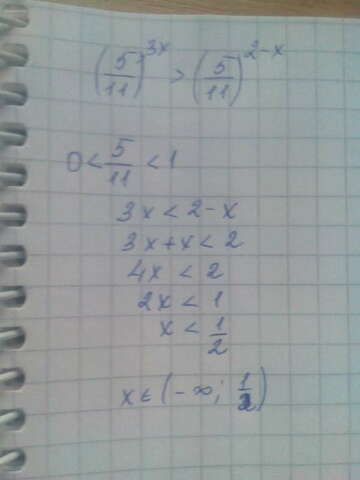 (5/11)^3x > (5/11)^2-x
0 < 5/11 < 1
3x < 2-x
3x+x < 2
4x < 2
2x < 1
x < 1/2
x ∈ (-∞; 1/2)